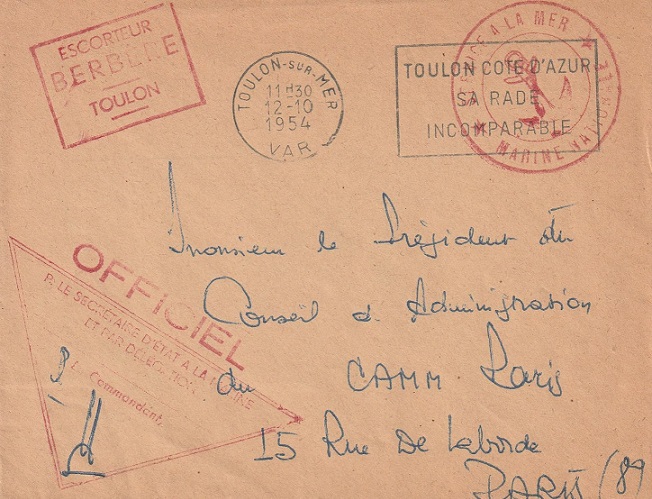 ESCORTEUR
BERBÈRE
TOULON
TOULON-SUR-MER
11H30
12-10
1954
VAR
TOULON COTE D'AZUR
SA RADE
INCOMPARABLE
A LA MER
MARINE NATIONALE
OFFICIEL
P. LE SECRÉTAIRE D'ÉTAT A LA MARINE
ET PAR DÉLÉGATION
Le Commandant,
Monsieur le Président du
Conseil d'Administration
du CAMM Paris
15 Rue De Laborde
PARIS (8e)